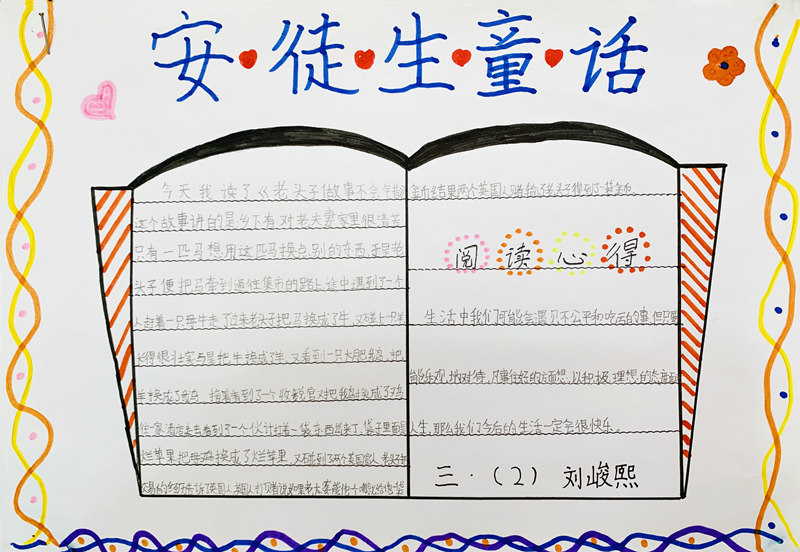 安徒生童话
今天我读了《老头子做事不会
金币结果两个英国人赌输了老头子得到了袋金币。
这个故事讲的是乡下有对老夫妻家里很清苦
只有一匹马想用这匹马换点别的东西
头子便把马牵到通往集市的路上途中遇到了一个
人赶着一只母牛走了过来老头子把马换成了牛,又碰上一只羊
长得很壮实与是把牛换成了羊,又看到一只大肥鹅,把
羊换成了鹅,接着看到了一个收税官又把鹅换成了鸡
往家酒店走去看到了一个伙计扛着一袋东西出来了,袋子里面是
烂苹果把母鸡换成了烂苹果,又碰到了两个英国富人
阅读心得
生活中我们可能会遇见不公平和吃亏的事但只要
乐观地对待,凡事往好的方面想,以积极、理想的态度面
人生,那么我们今后的生活一定会很快乐。
三·(2) 刘峻熙